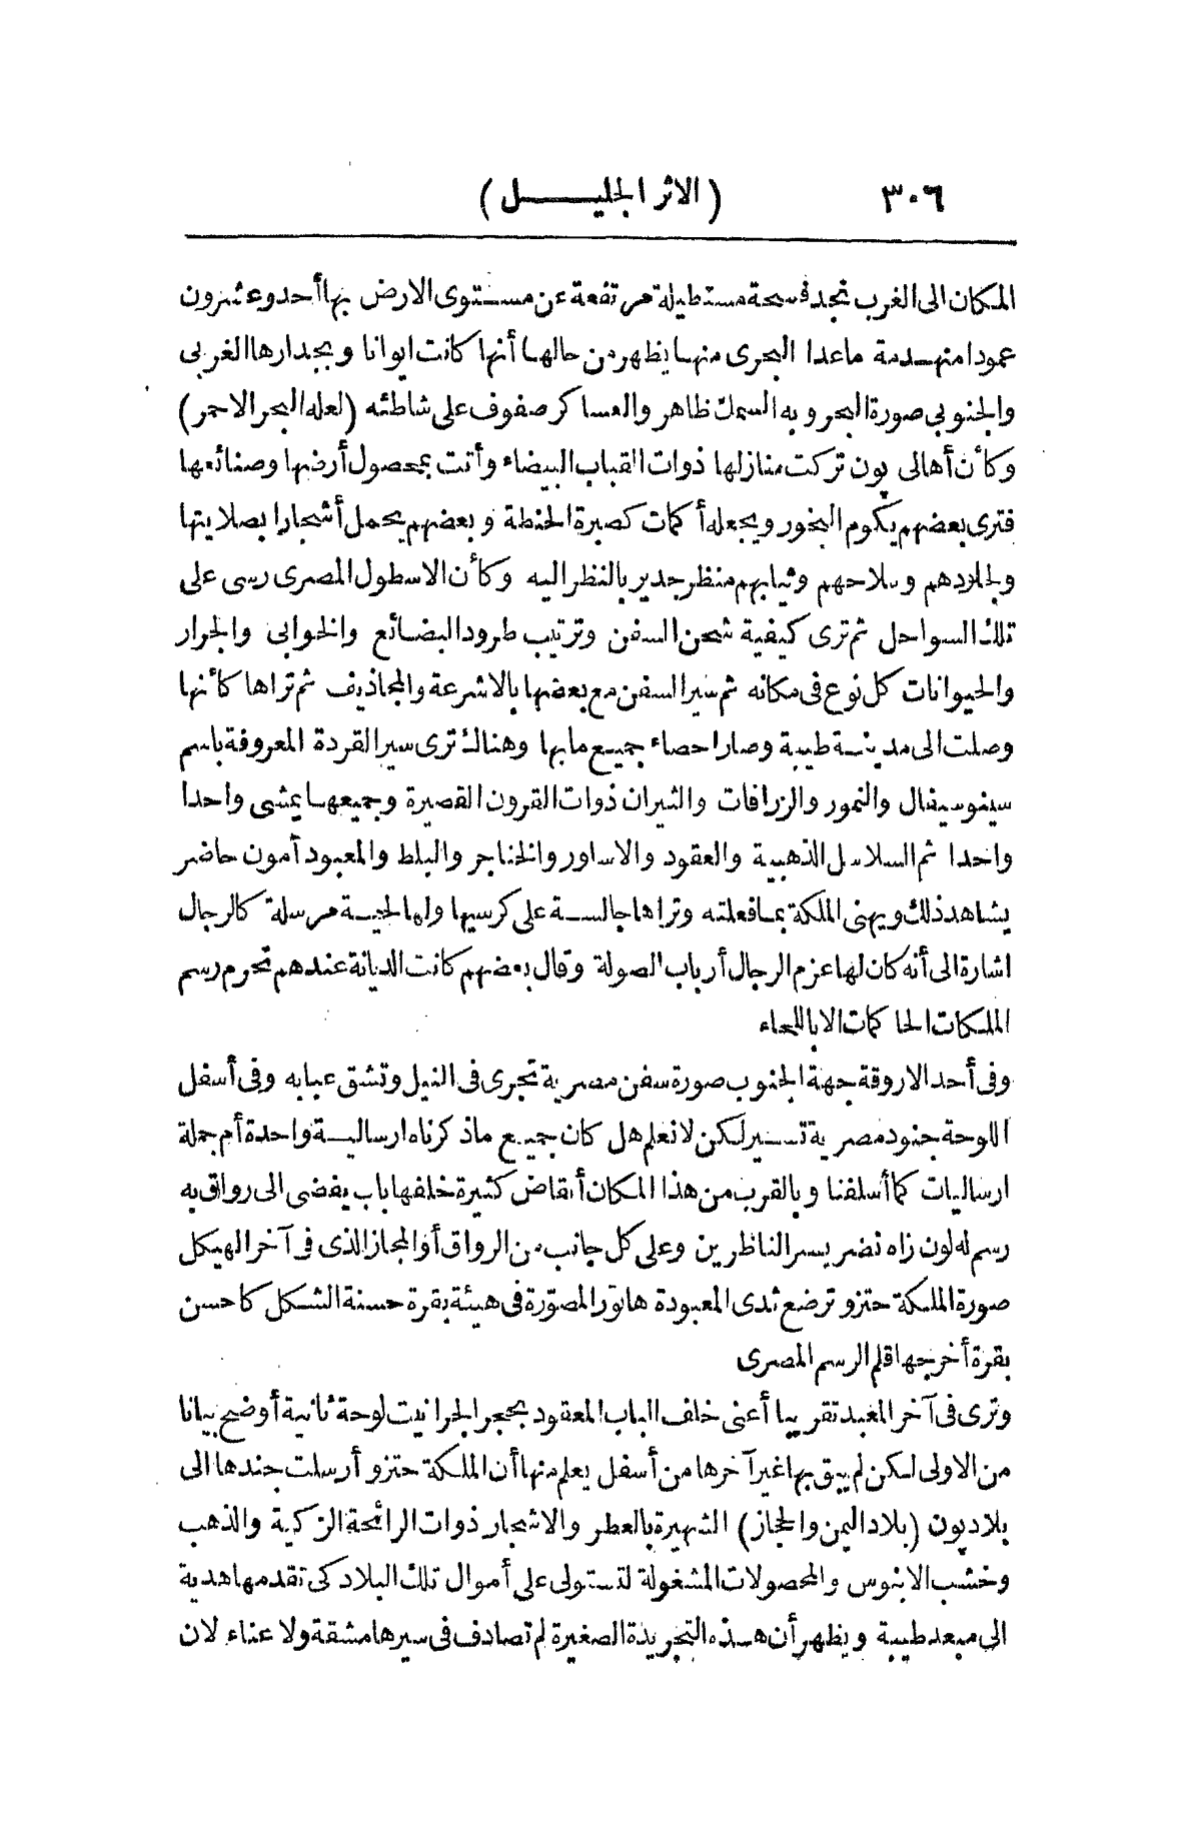 ٣٠٦ (الاثر الجليل)
المكان الى الغرب نجد فسحة مستطيلة مرتفعة عن مستوى الارض بها أحد وعشرون
عمودا منهدمة ماعدا البحرى منها يظهر من حالها أنها كانت ايوانا وبجدارها الغربى
والجنوبى صورة البحر وبه السمك ظاهر والعساكر صفوف على شاطئه (لعله البحر الاحمر)
وكأن أهالى پون تركت منازلها ذوات القباب البيضاء وأتت بمحصول أرضها وصنائعها
فترى بعضهم يكوم البخور ويجعله أكمات كصبرة الحنطة وبعضهم يحمل أشجارا بصلايتها
ولجلادهم وسلاحهم وثيابهم منظر جدير بالنظر اليه وكأن الاسطول المصرى رسى على
تلك السواحل ثم ترى كيفية شحن السفن وترتيب طرود البضائع والخوابى والجرار
والحيوانات كل نوع فى مكانه ثم سير السفن مع بعضها بالاشرعة والمجاذيف ثم تراها كأنها
وصلت الى مدينة طيبة وصار احصاء جميع مابها وهناك ترى سير القردة المعروفة باسم
سينوسيفال والنمور والزرافات والثيران ذوات القرون القصيرة وجميعها يمشى واحدا
واحدا ثم السلاسل الذهبية والعقود والاساور والخناجر والبلط والمعبود آمون حاضر
يشاهد ذلك ويهنى الملكة بمافعلته وتراها جالسة على كرسيها ولها لحية مرسلة كالرجال
اشارة الى أنه كان لها عزم الرجال أرباب الصولة وقال بعضهم كانت الديانة عندهم تحرم رسم
الملكات الحاكمات الا باللحاء
وفى أحد الاروقة جهة الجنوب صورة سفن مصرية تجرى فى النيل وتشق عبابه وفى أسفل
اللوحة جنود مصرية تسير لكن لانعلم هل كان جميع ماذكرناه ارسالية واحدة أم جملة
ارساليات كما أسلفنا وبالقرب من هذا المكان أنقاض كثيرة خلفها باب يفضى الى رواق به
رسم له لون زاه نضر يسر الناظرين وعلى كل جانب من الرواق أو المجاز الذى فى آخر الهيكل
صورة الملكة حتزو ترضع ثدى المعبودة هاتور المصوّرة فى هيئة بقرة حسنة الشكل كاحسن
بقرة أخرجها قلم الرسم المصرى
وترى فى آخر المعبد تقريبا أعنى خلف الباب المعقود بحجر الجرانيت لوحة ثانية أوضح بيانا
من الاولى لكن لم يبق بها غير آخرها من أسفل يعلم منها أن الملكة حتزو أرسلت جندها الى
بلاد پون (بلاد اليمن والحجاز) الشهيرة بالعطر والاشجار ذوات الرائحة الزكية والذهب
وخشب الابنوس والمحصولات المشغولة لتستولى على أموال تلك البلاد كى تقدمها هدية
الى معبد طيبة ويظهر أن هذه التجريدة الصغيرة لم تصادف فى سيرها مشقة ولا عناء لان